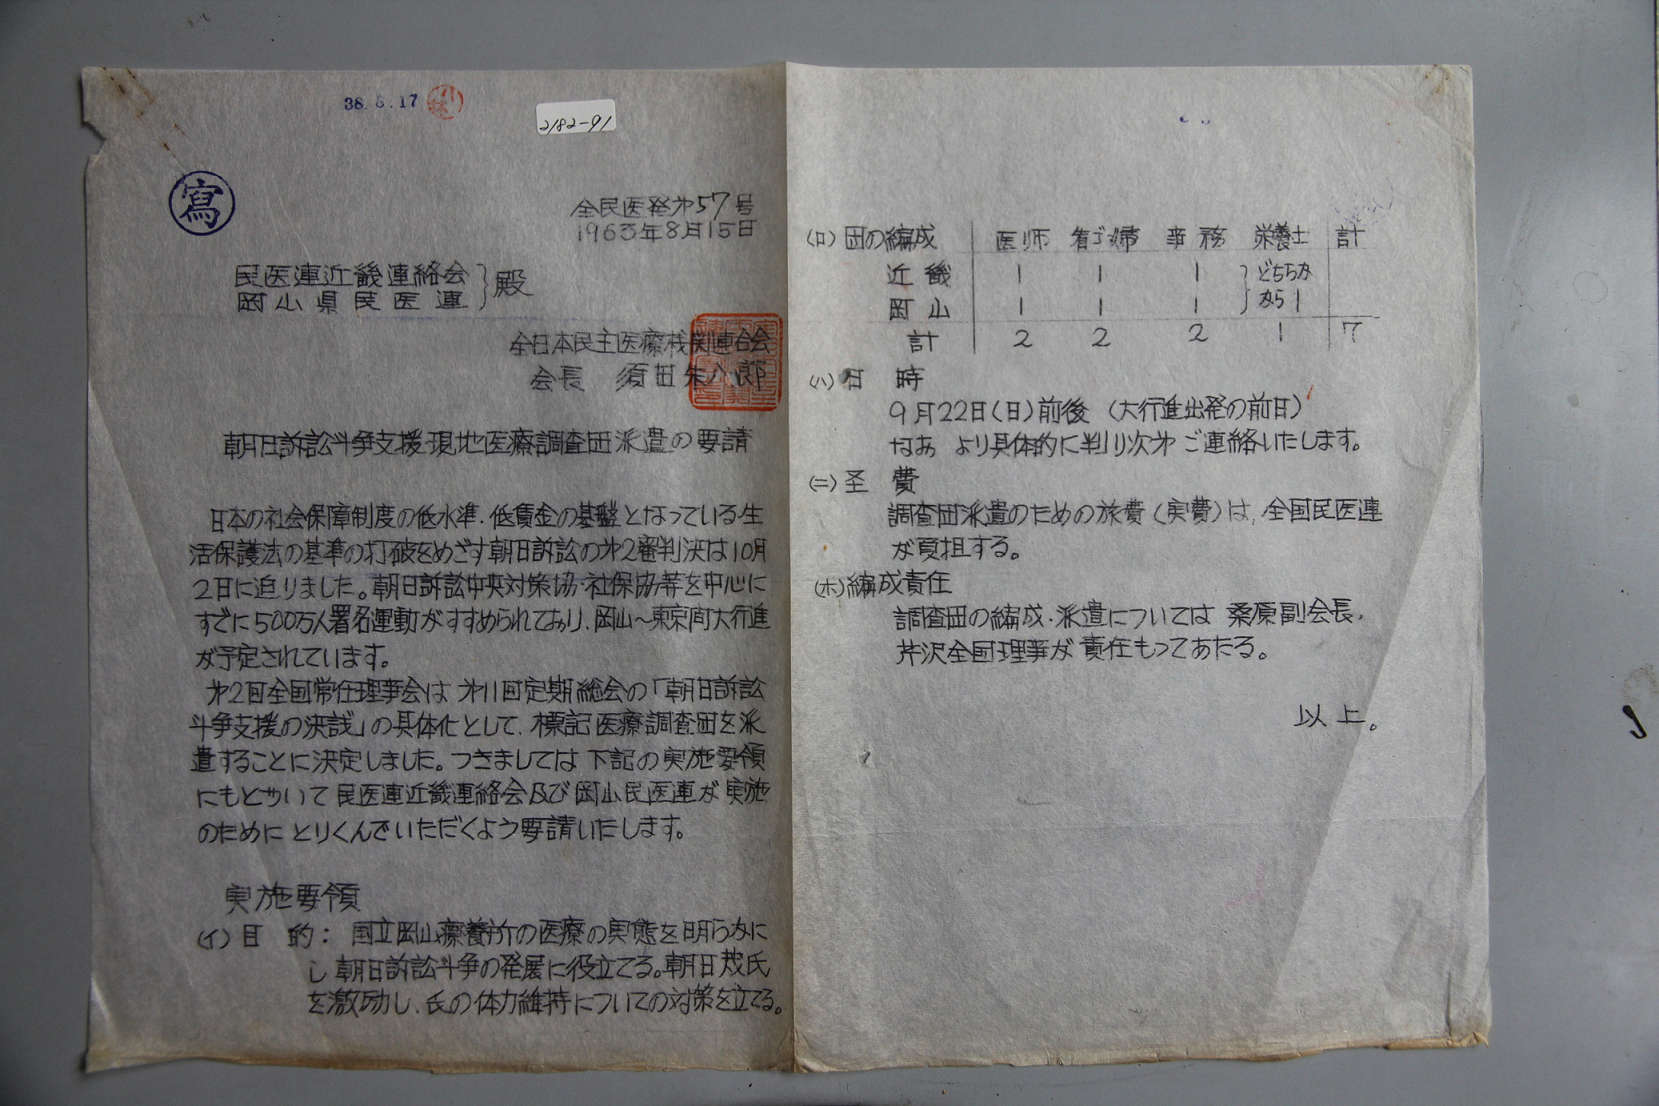 38.8.17
2182-91
寫
全民医発才57号
1963年8月15日
民医連近畿連絡会
岡山県民医連
殿
全日本民主医療桟関連合会
会長 須田朱八郎
朝日訴訟斗争支援現地医療調査団派遣の要請
日本の社会保障制度の低水準・低賃金の基盤となっている生
活保護法の基準の打破をめざす朝日訴訟の才2審判決は10月
2日に迫りました。朝日訴訟中央対策協・社保協等を中心に
すでに500万人署名運動がすすめられており、岡山~東京間大行進
が予定されています。
才2回全国常任理事会は才11回定期総会の「朝日訴訟
斗争支援の決議」の具体化として、標記医療調査団を派
遣することに決定しました。つきましては下記の実施要領
にもとづいて民医連近畿連絡会及び岡山民医連が実施
のためにとりくんでいただくよう要請いたします。
実施要領
(イ) 目 的: 国立岡山療養所の医療の実態を明らかに
し朝日訴訟斗争の発展に役立てる。朝日茂氏
を激励し、氏の体力維持についての対策を立てる。
(ロ) 団の編成 医師 看ゴ婦 事務 栄養士 計
近畿 1 1 1 どちらか
岡山 1 1 1 から1
計 2 2 2 1 7
(ハ) 日 時
9月22日(日)前後 (大行進出発の前日)
なお より具体的に判り次才ご連絡いたします。
(ニ) 圣 費
調査団派遣のための旅費(実費)は、全国民医連
が負担する。
(ホ) 編成責任
調査団の編成・派遣については 桑原副会長、
芹沢全国理事が責任もってあたる。
以上。